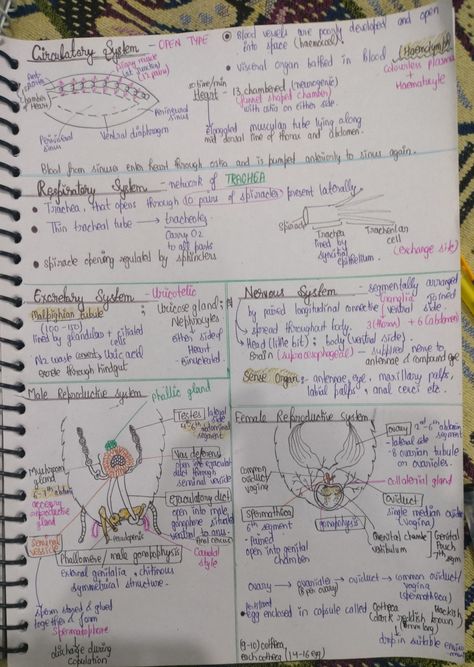 Circulatory System - OPEN TYPE
Blood vessels are poorly developed and open into space (haemocoel).
Visceral organ bathed in blood (Haemolymph)
Colourless plasma
+
Haematocyte
Alary muscle
(12 pairs)
Chamber of Heart
Perivisceral sinus
Perineural sinus
Ventral diaphragm
Heart
13 chambered (neurogenic)
(funnel shaped chamber)
with ostia on either side.
Elongated muscular tube lying along
mid dorsal line of thorax and abdomen.
Blood from sinuses enter heart through ostia and is pumped anteriorly to sinus again.
Respiratory System - network of TRACHEA
Trachea, that opens through 10 pairs of spiracles present laterally
Thin tracheal tube → tracheoles
Carry O2
to all parts
Spiracle opening regulated by sphincters
Spiracle
Trachea
lined by
epithelium.
Tracheolar
cell
(exchange site)
Excretory System - Uricotelic
Malpighian tubule
(100-150)
lined by glandular + ciliated
cells
Uricose gland;
Nephrocytes
either side of
Heart
Na waste converts Uric acid
excrete through hindgut
Nervous System - segmentally arranged
ganglia joined
by paired longitudinal connective ventral side.
spread throughout body. 3 (thorax) + 6 (abdomen)
Head (little bit); body (ventral side)
Brain (supraoesophageal) - supplied nerve to
antennae & compound eye
Sense Organ: - antennae, eye, maxillary palps,
labial palps, anal cerci etc.
Male Reproductive System
phallic gland
Testes
lateral side
4th-6th abdominal
segment
Vas deferens
open into ejaculatory
duct through
seminal vesicle
Ejaculatory duct
open into male
gonopore situated
ventral to anus
Mushroom
gland
6th-7th abdomen
accessory
reproductive
gland
Seminal
vesicle
Pseudopenis
Caudal
style
Phallomere / male gonapophysis
external genitalia - chitinous
asymmetrical structure.
Sperm stored & glued
together & form
Spermatophore
discharge during
copulation
Female Reproductive System
ovary 2nd-6th abdomen
segment
- lateral side
- 8 ovarian tubule
or ovarioles.
Common
oviduct/
vagina
Collaterial gland
Oviduct
single median oviduct
(vagina)
Spermatheca
6th segment
- Paired
open into genital
chamber
gonapophysis
Genital chamber
vestibulum
Genital
Pouch
7th segm
ovary → ovariole → oviduct → common oviduct/
(8 per ovary)
vagina
(spermatheca)
egg enclosed in capsule called Ootheca
(dark reddish brown)
(8mm long)
drop in suitable
(9-10) ootheca
each ootheca (14-16 egg)